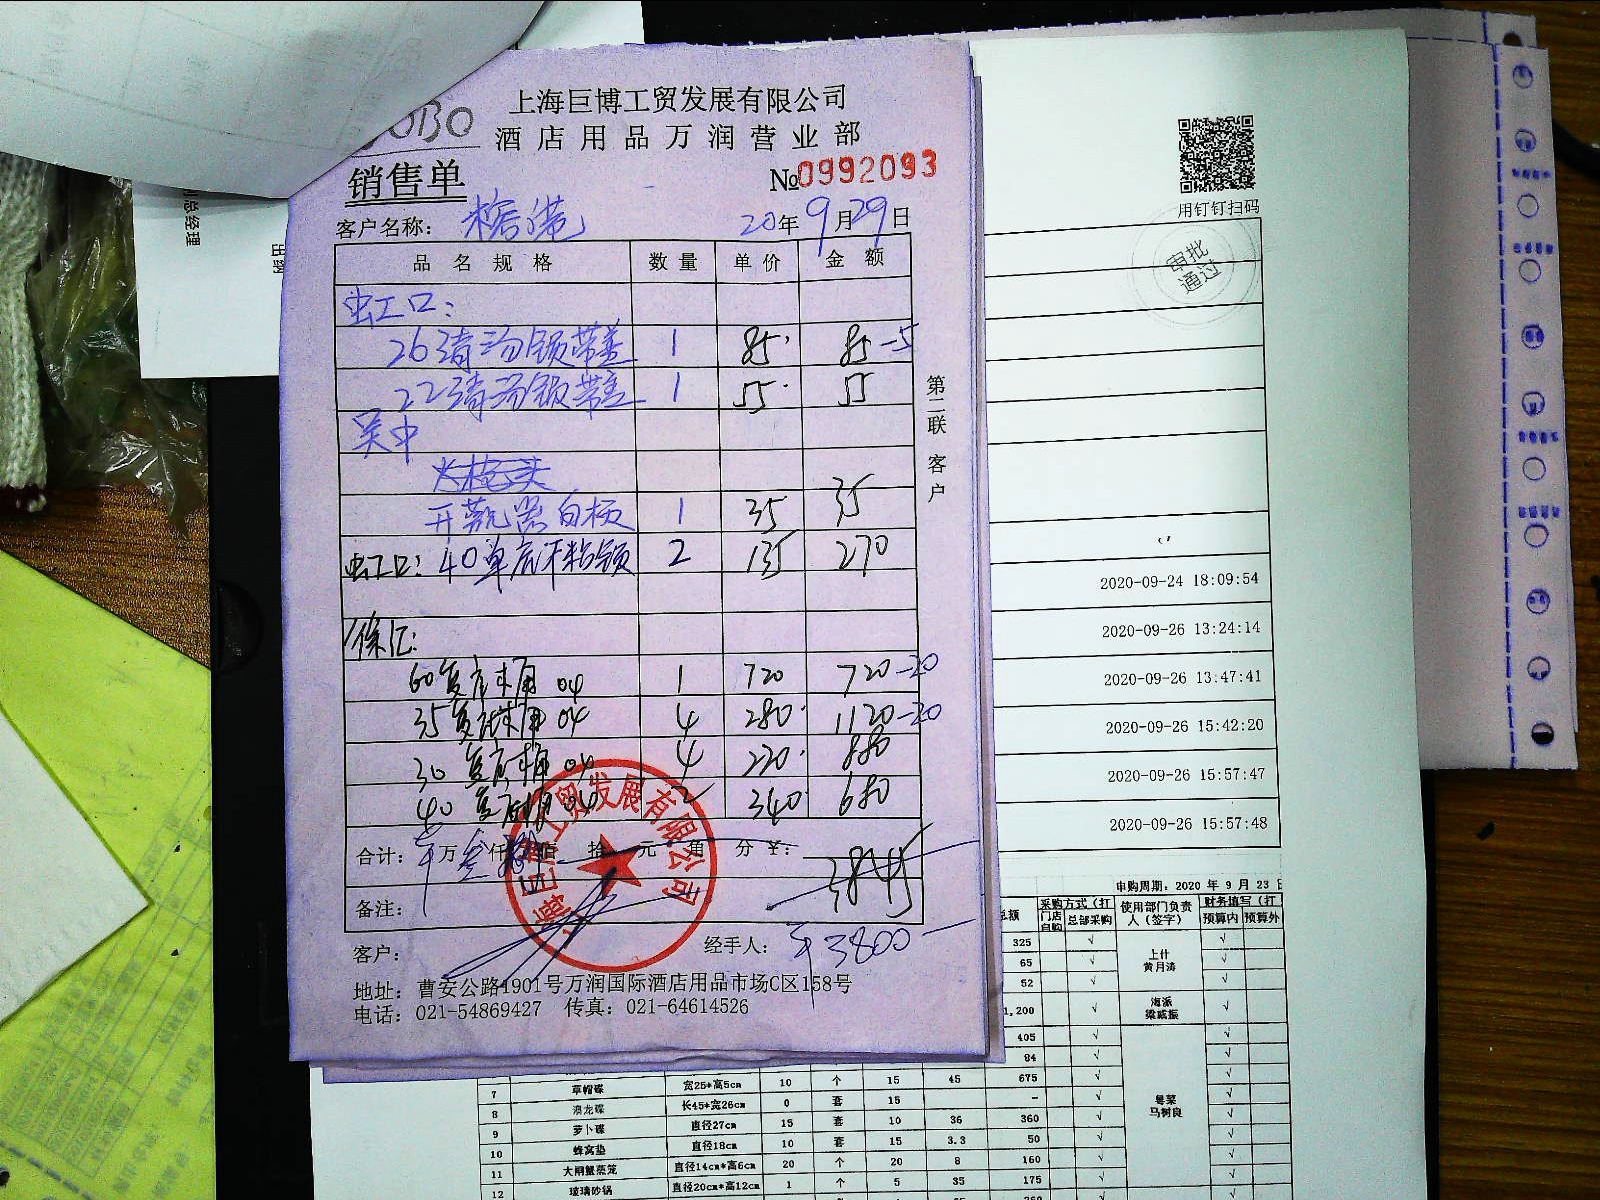 上海巨博工贸发展有限公司
酒店用品万润营业部
销售单
№0992093
客户名称：榕港
20年9月29日
品名规格 数量 单价 金额
虹口：
26清汤锅带盖 1 85 85 -5
22清汤锅带盖 1 55 55
吴中
开瓶器白板 1 35 35
虹口：40单底不粘锅 2 135 270
徐汇：
60复底 04 1 720 720 -20
35复底 04 4 280 1120 -20
30复底 04 4 220 880
40复底 04 2 340 680
合计： 万 仟 佰 拾 元 角 分 ¥： 3845
备注：
客户：
经手人：
¥3800
地址：曹安公路1901号万润国际酒店用品市场C区158号
电话：021-54869427 传真：021-64614526
第二联 客户
工贸发展有限公司
总经理
用钉钉扫码
审批通过
2020-09-24 18:09:54
2020-09-26 13:24:14
2020-09-26 13:47:41
2020-09-26 15:42:20
2020-09-26 15:57:47
2020-09-26 15:57:48
申购周期：2020 年 9 月 23
总额 采购方式（打 使用部门负责人（签字） 财务填写（打
门店自购 总部采购 预算内 预算外
325 √ 上什 黄月涛 √
65 √ √
52 √ √
1,200 √ 海派 √
405 √ √
84 √ √
7 草帽碟 宽25*高5cm 10 个 15 45 675 √ 粤菜 马树良 √
8 澳龙碟 长45*宽26cm 0 套 15 - √ √
9 萝卜碟 直径27cm 15 套 10 36 360 √ √
10 蜂窝垫 直径18cm 10 套 15 3.3 50 √ √
11 大闸蟹蒸笼 直径14cm*高6cm 20 个 20 8 160 √ √
12 玻璃砂锅 直径20cm*高12cm 1 个 5 35 175 √ √